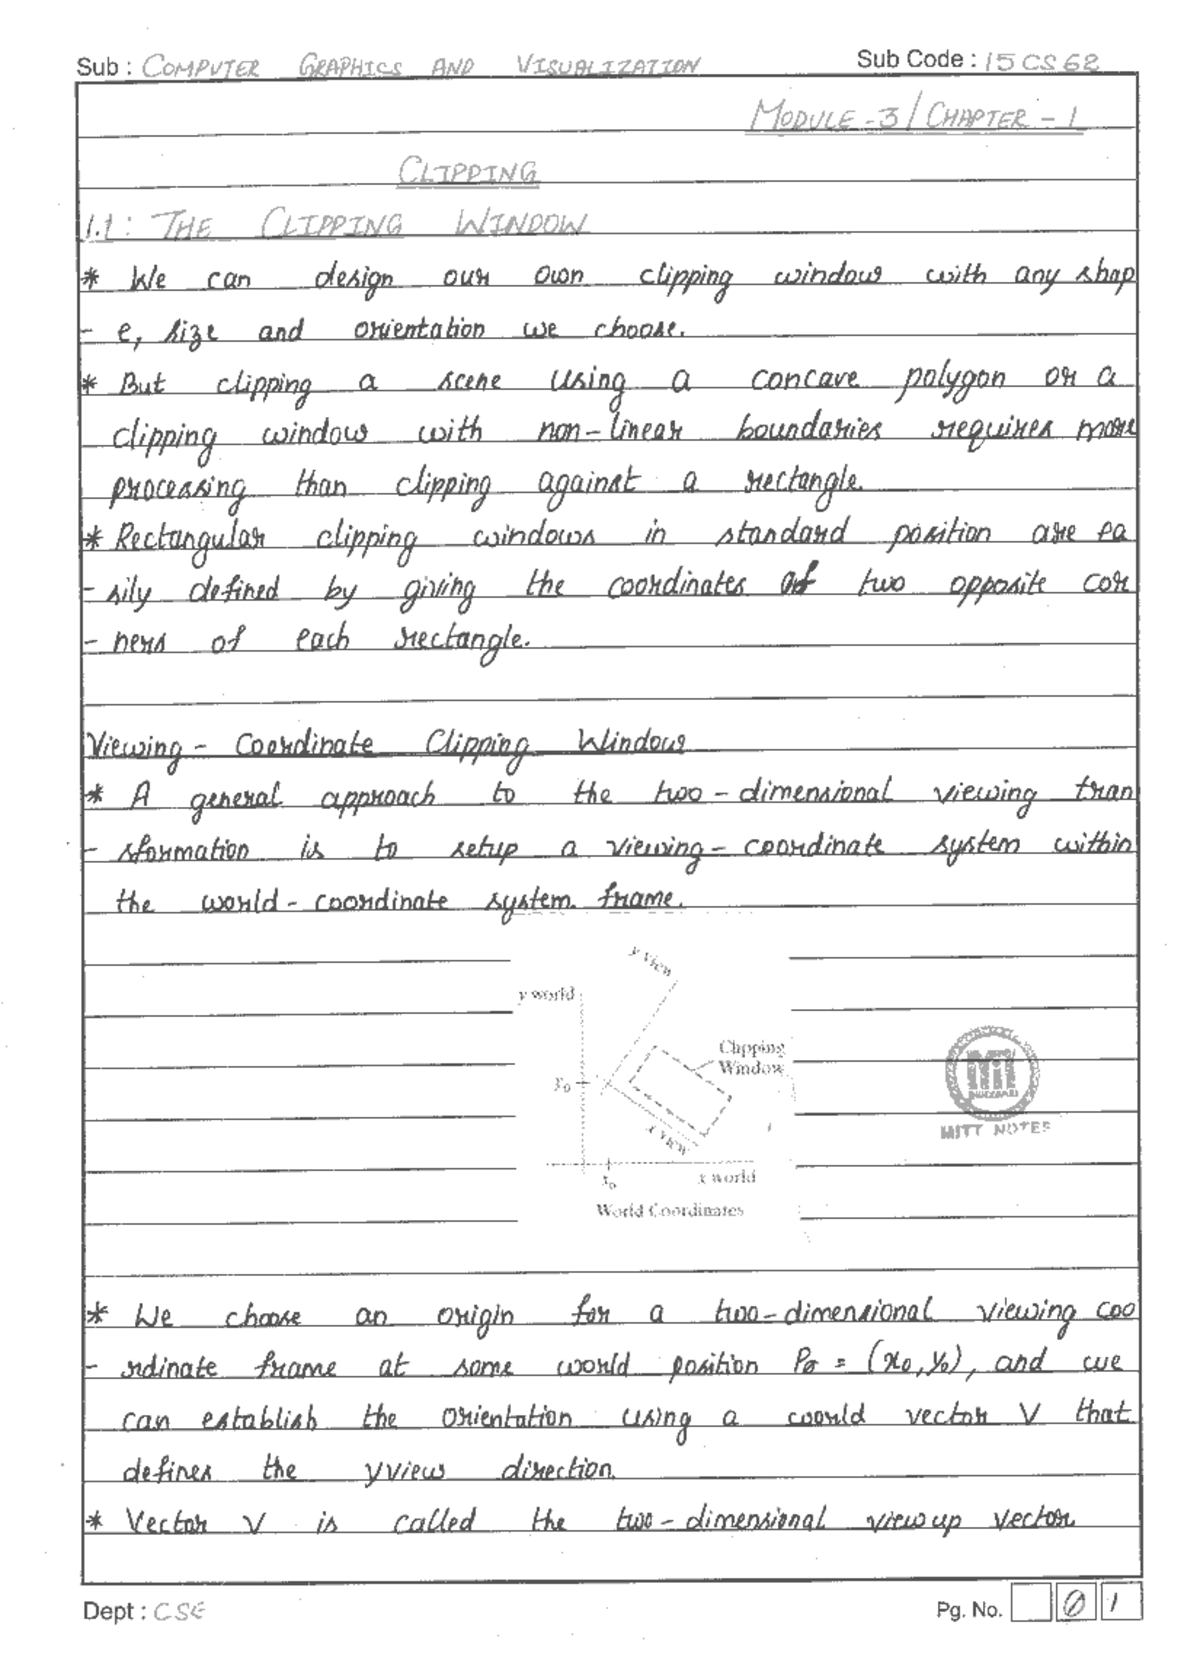 Sub : COMPUTER GRAPHICS AND VISUALIZATION Sub Code : 15CS62
MODULE - 3 / CHAPTER - 1
CLIPPING
1.1 : THE CLIPPING WINDOW
* We can design our own clipping window with any shap
- e, size and orientation we choose.
* But clipping a scene using a concave polygon or a
clipping window with non-linear boundaries requires more
processing than clipping against a rectangle.
* Rectangular clipping windows in standard position are ea
- sily defined by giving the coordinates of two opposite cor
- ners of each rectangle.
Viewing - Coordinate Clipping Window
* A general approach to the two - dimensional viewing tran
- sformation is to setup a viewing - coordinate system within
the world - coordinate system frame.
y view
y world
Clipping
Window
y0
x view
x0 x world
World Coordinates
MIT
MITT NOTES
* We choose an origin for a two-dimensional viewing coo
- rdinate frame at some world position P0 = (x0, y0), and we
can establish the orientation using a world vector V that
defines the yview direction.
* Vector V is called the two - dimensional view up vector
Dept : CSE Pg. No. 0 1